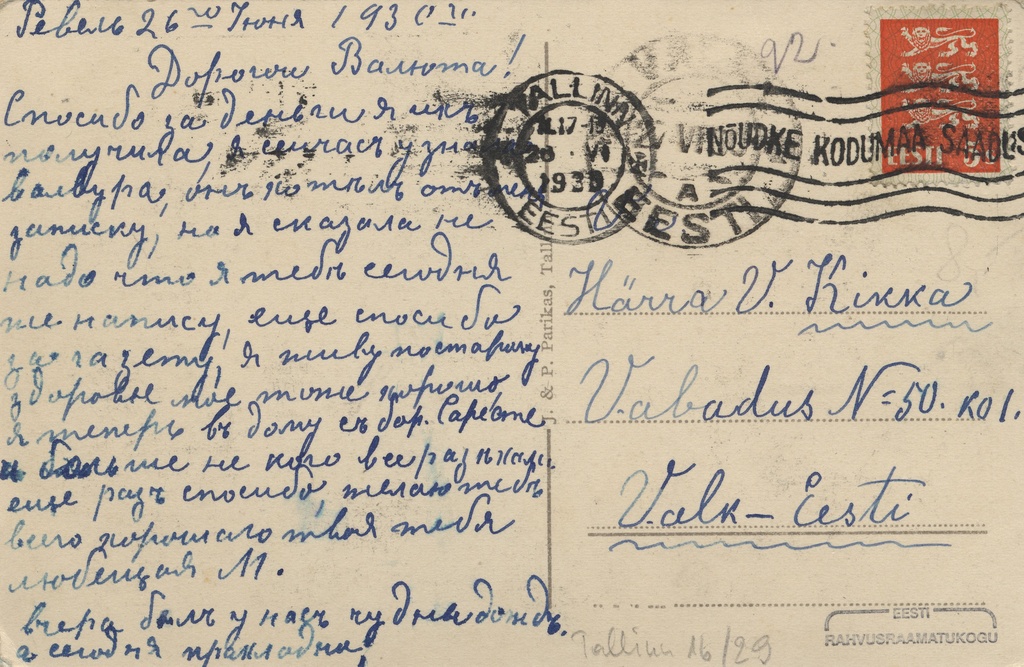 Ревель 26го Июня 1930 г.
Дорогой Валюта!
Спосибо за деньги я ихъ
получила, я сейчасъ
он хотелъ
записку, но я сказала не
надо что я тебѣ сегодня
же напису, еще спосибо
за газету, я живу постарому
здоровье мое тоже хорошо,
я теперь въ дому съ бар. Саресте
и больше не кого все
еще разъ спосибо, желаю тебѣ
всего хорошаго твоя тебя
любещая М.
вчера былъ у насъ чудны дождь.
а сегодня прахладна!
TALLINN
26 VI
EESTI
EESTI
A
NÕUDKE KODUMAA SAADUS
EESTI
92.
J. & P. Parikas, Tall
Härra V. Kikka
Vabadus N=50. ко 1.
Valk - Eesti
Tallinn 16/29
EESTI
RAHVUSRAAMATUKOGU